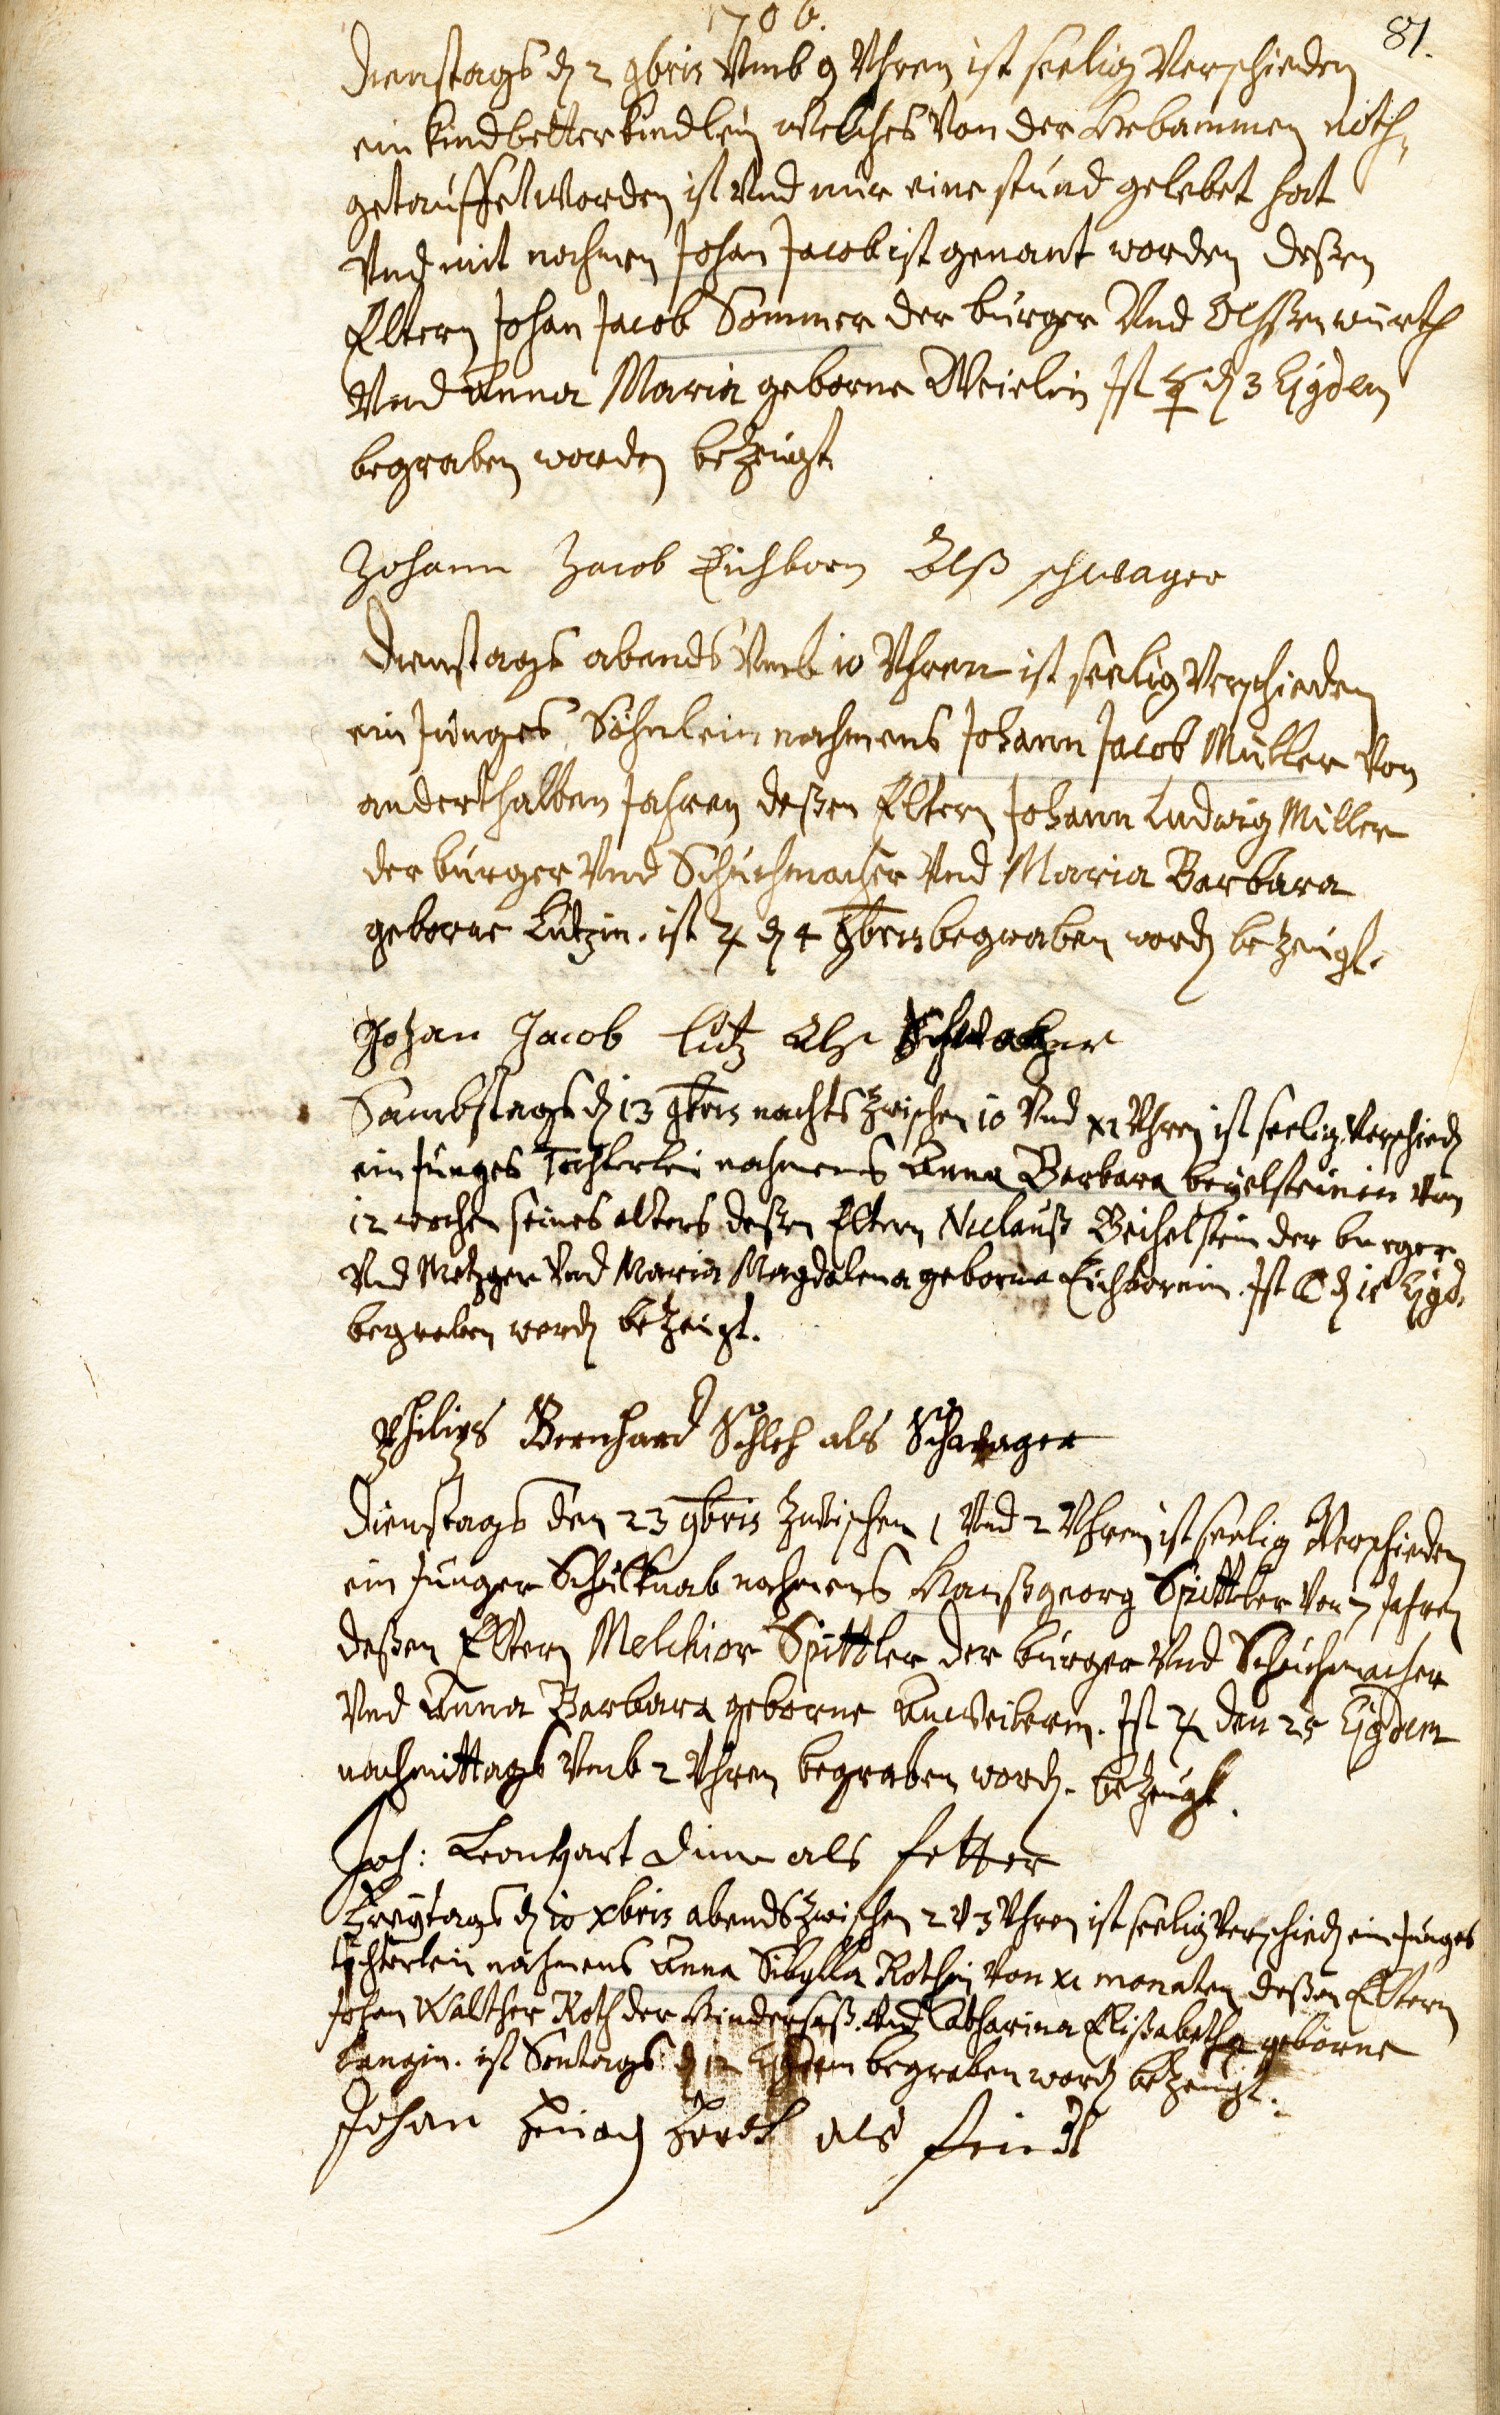 1706.
81.
Dienstags d 2 9bris Vmb 9 Vhren ist seelig Verschieden
ein Kindbetterkindlein welches Von der Hebammen nöth,
getauffet worden ist Vnd nur eine stund gelebet hat
Vnd mit nahmen Johan Jacob ist genant worden deßen
Eltern Johan Jacob Sommer der burger Vnd Ochßenwürth
Vnd Anna Maria geborne Weirlin Ist ☿ d 3 Ejgdem
begraben worden bezeugt.
Johann Jacob Eichborn Alß schwager
Dienstags abends Vmb 10 Vhren ist seelig Verschieden
ein Junges Söhnlein nahmens Johann Jacob Müller Von
anderthalben Jahren deßen Eltern Johann Ludwig Müller
der burger Vnd Schuchmacher Vnd Maria Barbara
geborne Lützin. ist ♃ d 4 9bris begraben word bezeugt.
Johan Jacob Lütz Als Schwager
Sambstags d 13 9bris nachts Zwischen 10 Vnd XI Vhren ist seelig Verschied
ein Junges Töchterlein nahmens Anna Barbara beyelsteinin Von
12 wochen seines alters deßen Eltern Niclauß Beihelstein der burger
Vnd Metzger Vnd Maria Magdalena geborne Eichbornin. Ist ☾ d 15 Ejgd.
begraben word bezeugt.
Philips Bernhard Schleh als Schwager
Dienstags den 23 9bris Zwischen 1 Vnd 2 Vhren ist seelig Verschieden
ein Junger Schulknab nahmens Hanßgeorg Spittler Von 7 Jahren
deßen Eltern Melchior Spittler der burger Vnd Schuchmacher
Vnd Anna Barbara geborne Anweilerin. Ist ♃ den 25 Ejgdem
nachmittags Vmb 2 Vhren begraben word. bezeugt.
Joh: Leonhart als fetter
Freytags d 10 Xbris abends Zwischen 2 V 3 Vhren ist seelig Verschied ein Junges
töchterlein nahmens Anna Sibylla Rothin Von XI monaten deßen Eltern
Johan Walther Roth der Hindersaß Vnd Catharina Elißabetha geborne
Langin. ist Sontags d 12 Ejgdem begraben word bezeugt.
Johan als freindt